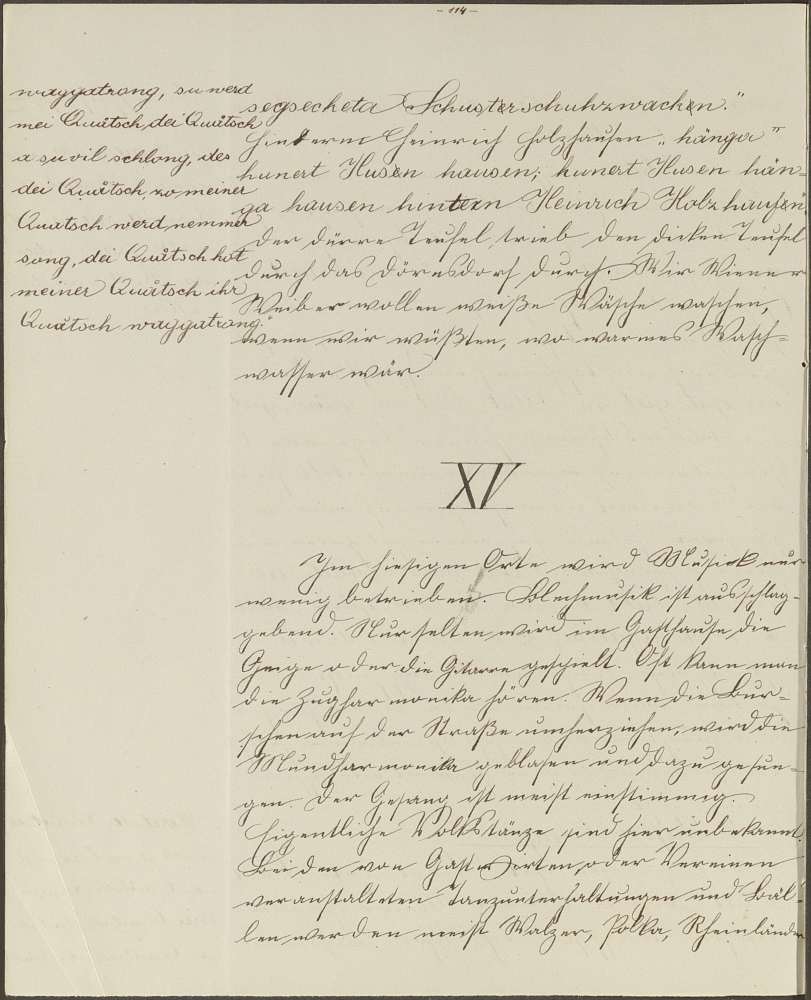 - 114 -
waggatrang, su werd
mei Quåtsch dei Quåtsch
a su vil schlong, des
dei Quåtsch zo meiner
Quatsch werd nemmer
song, dei Quåtsch hot
meiner Quåtsch ihr
Quåtsch waggatrang."
segsecheta Schusterschuhzwacken."
Hinterm Heinrich Holzhausen „hänga"
hunert Husen hausen; hunert Husen hän-
ga hausen hintern Heinrich Holzhausen.
Der dürre Teufel trieb den dicken Teufel
durch das Dörnsdorf durch. Wir Wiener
Weiber wollen weiße Wäsche waschen,
wenn wir wüßten, wo warmes Wasch-
wasser wär.
XV
Im hiesigen Orte wird Musick nur
wenig betrieben. Blechmusik ist ausschlag-
gebend. Nur selten wird im Gasthause die
Geige oder die Gitarre gespielt. Oft kann man
die Zugharmonika hören. Wenn die Bur-
schen auf der Straße umherziehen, wird die
Mundharmonika geblasen und dazu gesun-
gen. Der Gesang ist meist einstimmig.
Eigentliche Volkstänze sind hier unbekannt.
Bei den von Gastwirten oder Vereinen
veranstalteten Tanzunterhaltungen und Bäl-
len werden meist Walzer, Polka, Rheinländer